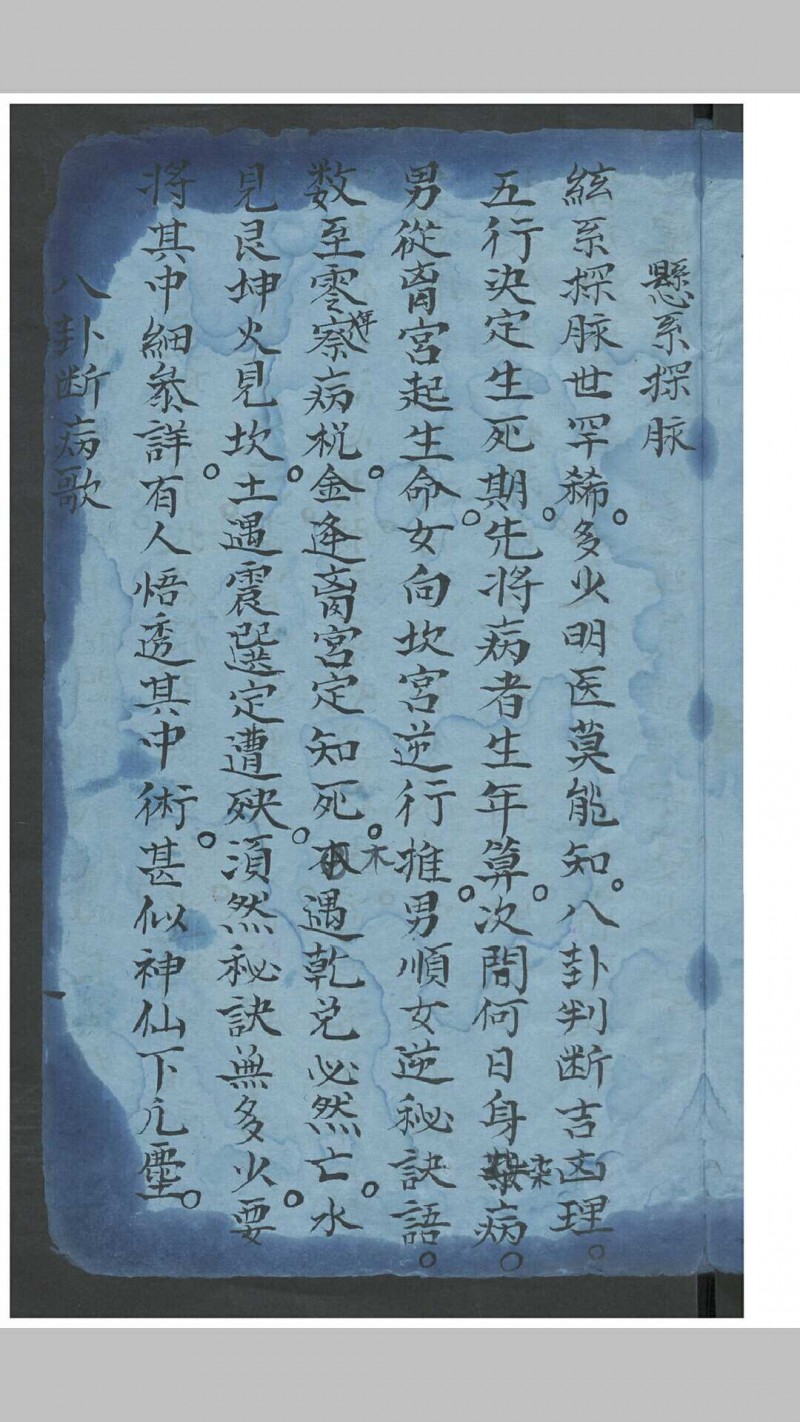 懸系探脉
絃系探脉世罕稀。多少明医莫能知。八卦判断吉凶理。
五行決定生死期。先将病者生年算。次問何日身染病。
男從离宮起生命。女向坎宮逆行推。男順女逆秘訣語。
数至零察病机。金逢离宮定知死。木遇乾兑必然亡。水
見艮坤火見坎。土遇震巽定遭殃。須然秘訣無多少。要
将其中細叅詳。有人悟透其中術。甚似神仙下凢塵。
八卦断病歌